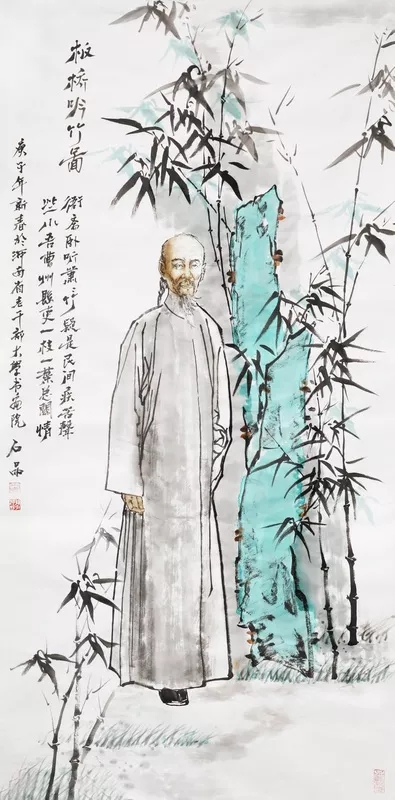 板桥吟竹图
衙斋卧听萧萧竹疑是民间疾苦声
些小吾曹州县吏一枝一叶总关情
庚子年新春於河南省老干部大学书画院 石品